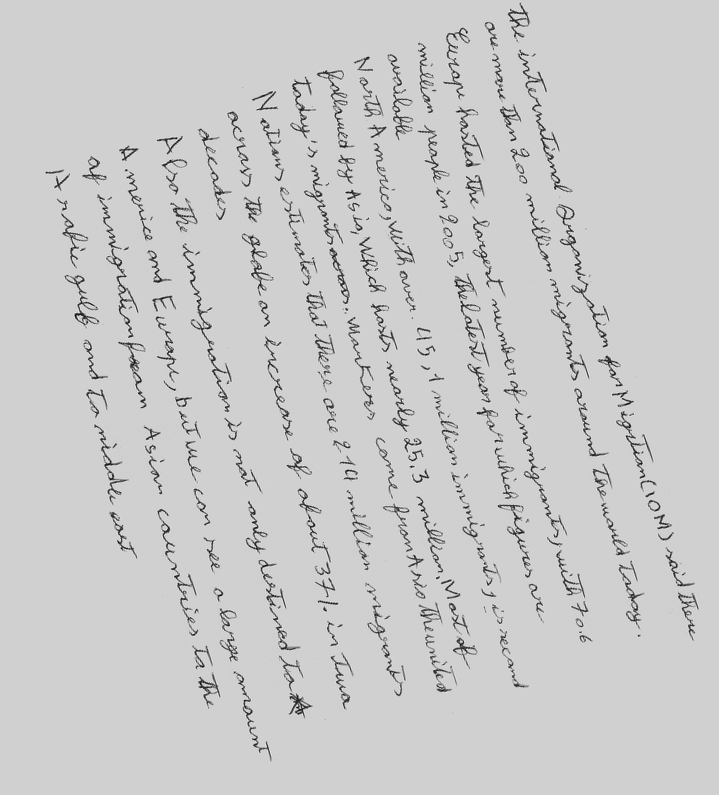 The international Organization for Migrtion (IOM) said there
are more than 200 million migrants around the would today.
Europe hasted the largest number of immigrants, with 70.6
million people in 2005, the latest year for which figures are
available
North America, with over 45,1 million immigrants, is second
followed by Asia, which hasts nearly 25.3 million. Most of
today's migrants across. workers come from Asia the united
Nations estimates that there are 214 million migrants
across the globe an increase of about 37% in two
decades
Also the immigration is not only destined to A
America and Europe, but we can see a large amount
of immigration from Asian countries to the
Arabic gulf and to middle east